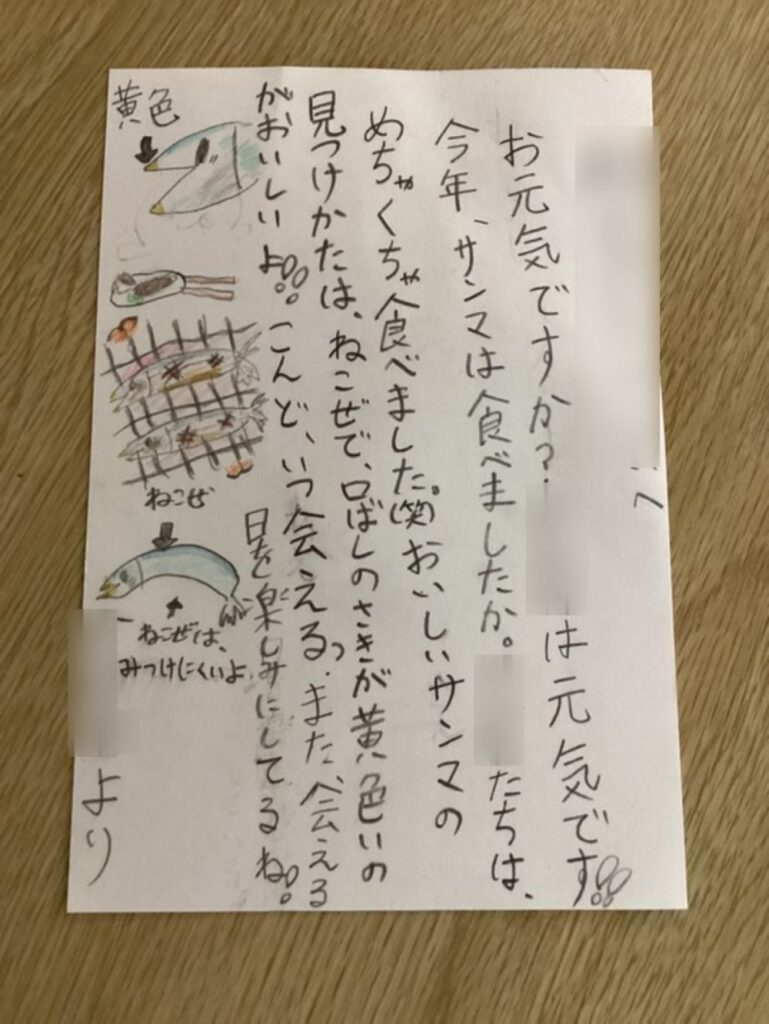 へ
お元気ですか?
は元気です!!
今年、サンマは食べましたか。
たちは、
めちゃくちゃ食べました。(笑)おいしいサンマの
見つけかたは、ねこぜで、口ばしのさきが黄色いの
がおいしいよ!!こんど、いつ会える?また、会える
日を楽しみにしてるね!!
より
黄色
ねこぜ
ねこぜは、
みつけにくいよ